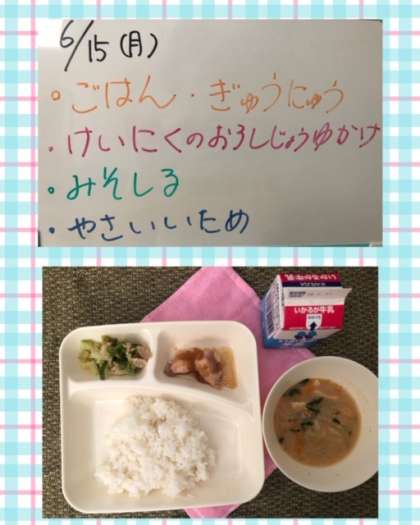 6/15(月)
• ごはん・ぎゅうにゅう
• けいにくのおろしじょうゆかけ
• みそしる
• やさいいため
いかるが牛乳
いかるが牛乳